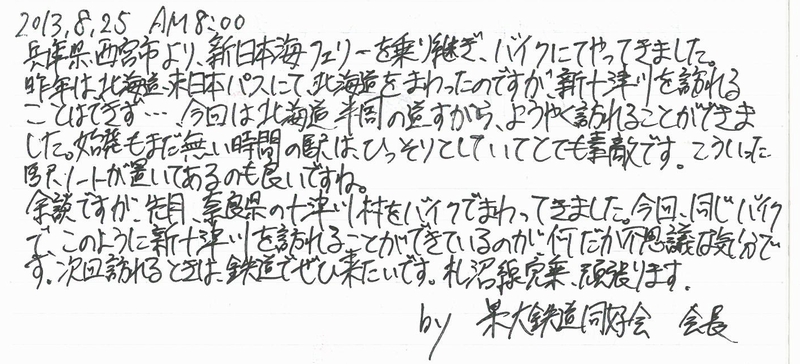 2013,8,25 AM8:00
兵庫県西宮市より、新日本海フェリーを乗り継ぎ、バイクにてやってきました。
昨年は北海道東日本パスにて、北海道をまわったのですが、新十津川を訪れる
ことはできず…。今回は北海道半周の道すがら、ようやく訪れることができま
した。始発もまだ無い時間の駅は、ひっそりとしていてとても素敵です。こういった
駅ノートが置いてあるのも良いですね。
余談ですが、先月、奈良県の十津川村をバイクでまわってきました。今回、同じバイク
で、このように新十津川を訪れることができているのが、何だか不思議な気分で
す。次回訪れるときは、鉄道でぜひ来たいです。札沼線完乗、頑張ります。
by 大鉄道同好会 会長